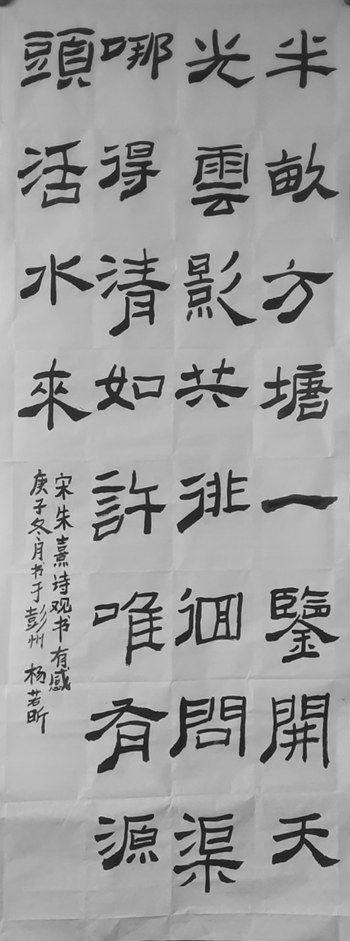 半畝方塘一鑒開天
光雲影共徘徊問渠
哪得清如許唯有源
頭活水來
宋朱熹诗观书有感
庚子冬月书于彭州 杨若昕